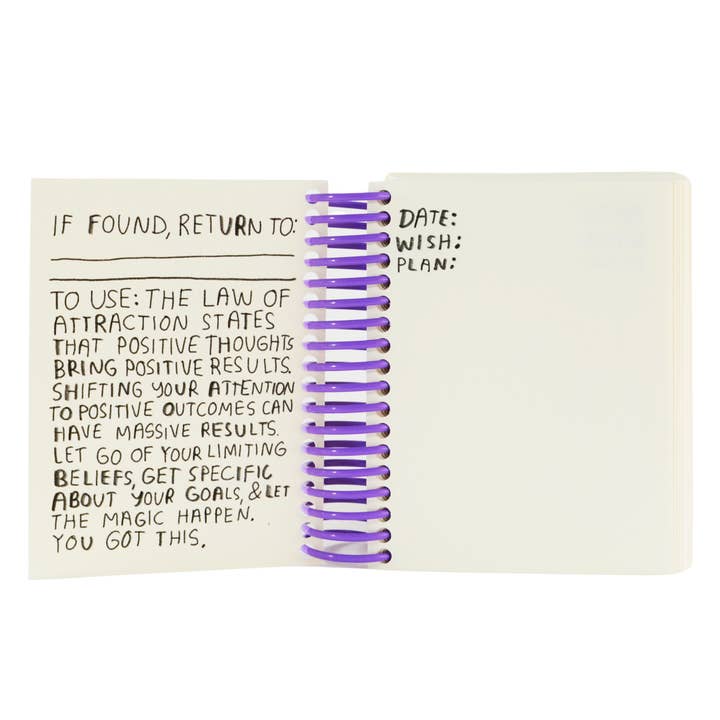 IF FOUND, RETURN TO:
TO USE: THE LAW OF
ATTRACTION STATES
THAT POSITIVE THOUGHTS
BRING POSITIVE RESULTS.
SHIFTING YOUR ATTENTION
TO POSITIVE OUTCOMES CAN
HAVE MASSIVE RESULTS.
LET GO OF YOUR LIMITING
BELIEFS, GET SPECIFIC
ABOUT YOUR GOALS, & LET
THE MAGIC HAPPEN.
YOU GOT THIS.
DATE:
WISH:
PLAN: